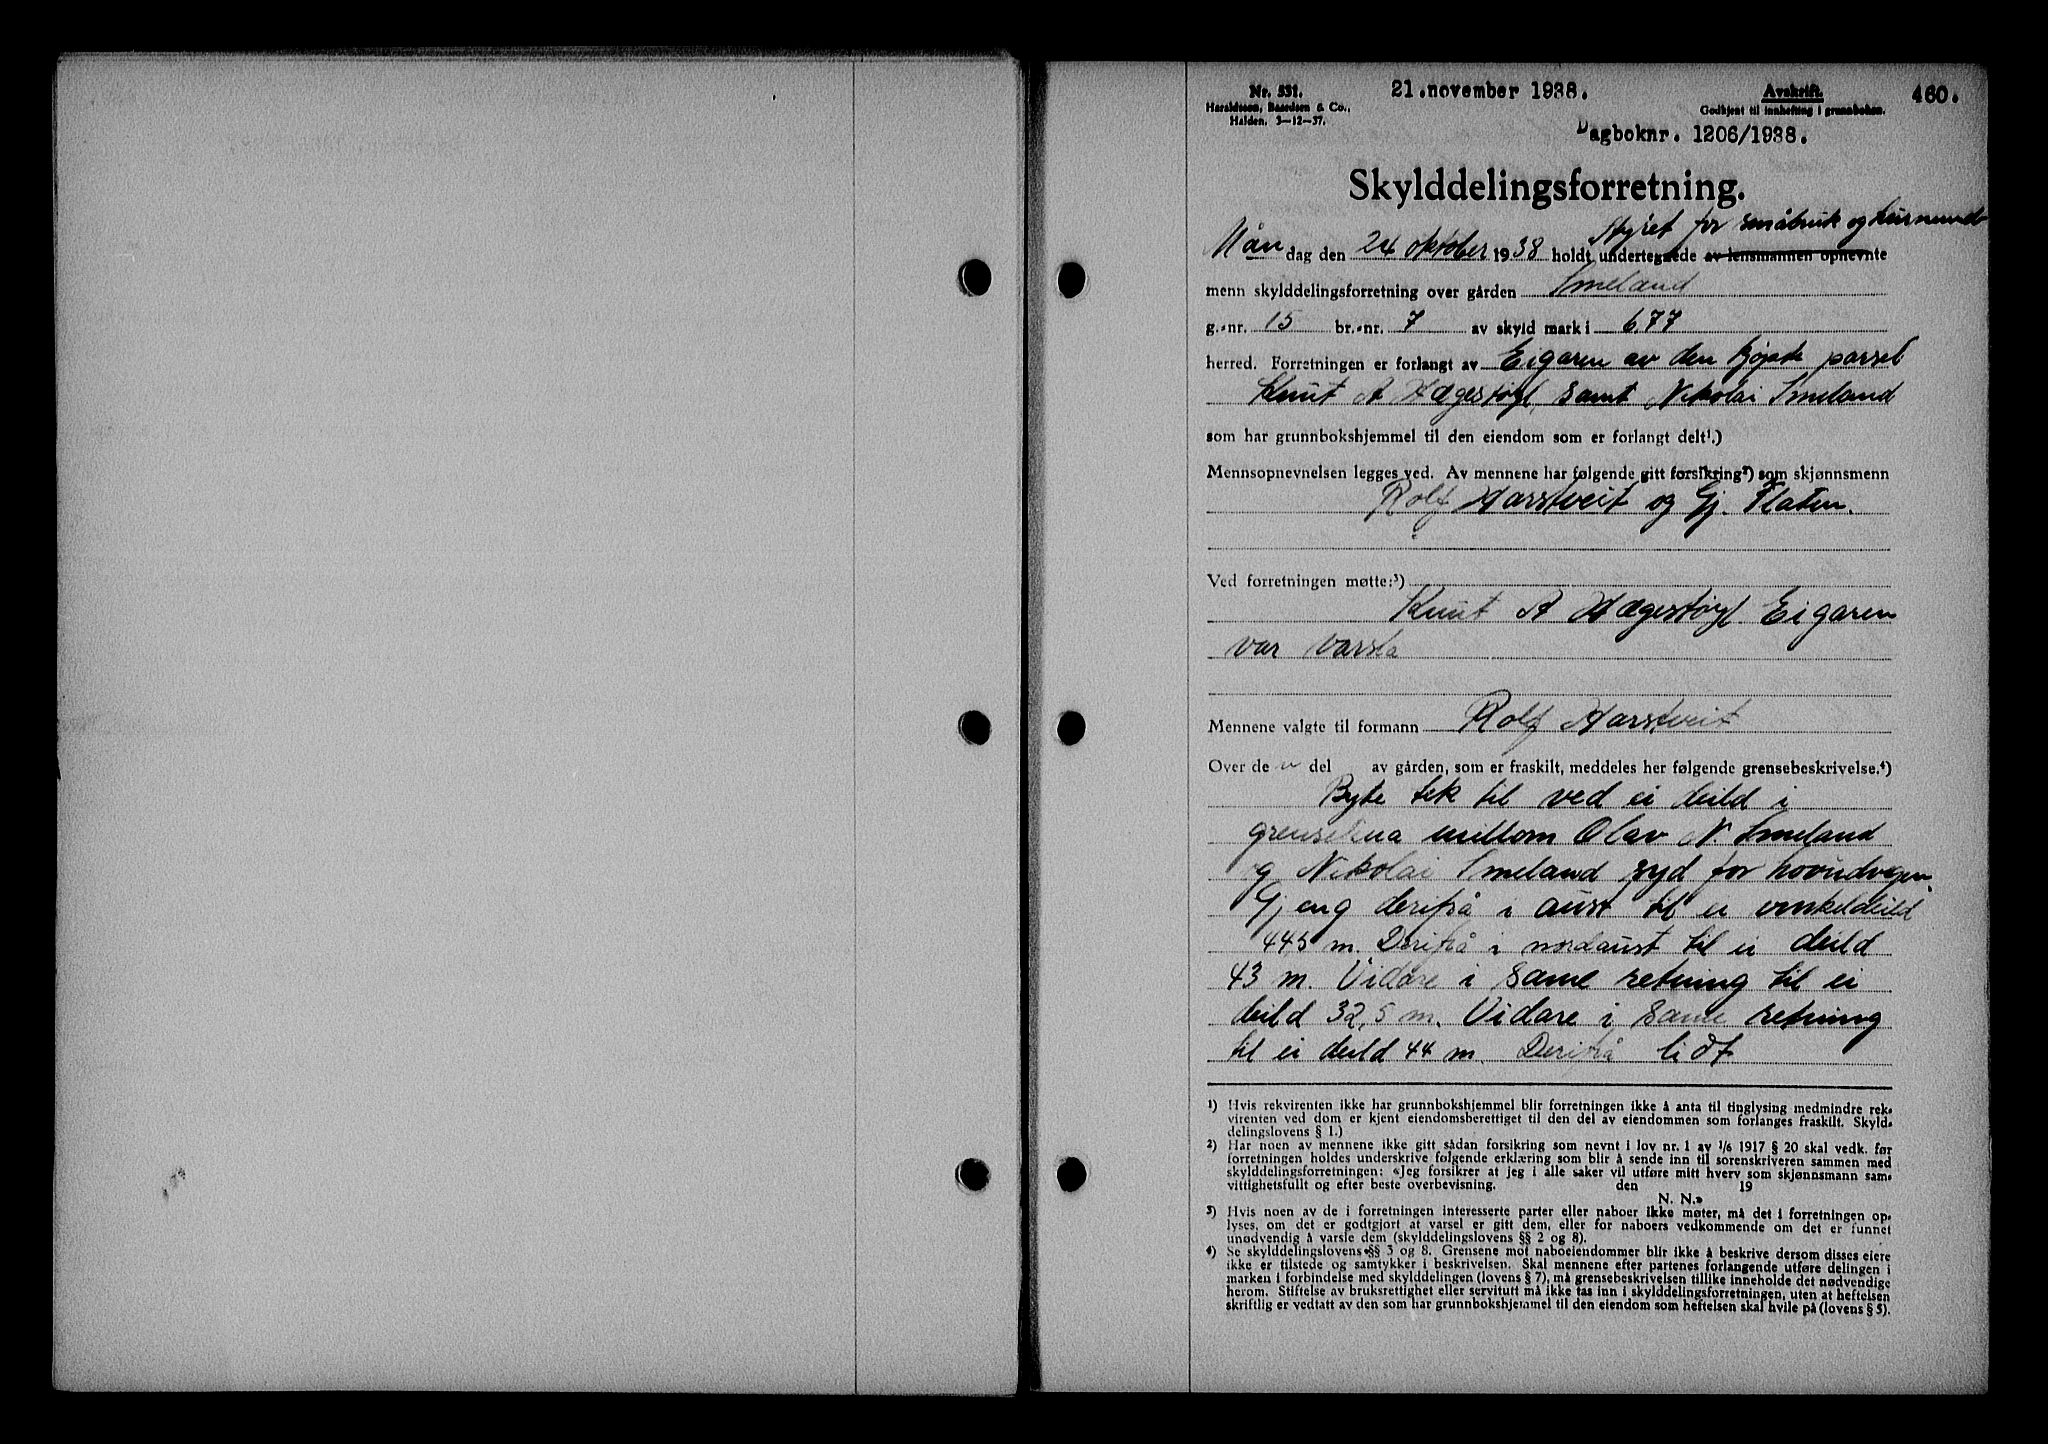 Nr. 531.
Haraldssen, Basedsen & Co.,
Halden. 3-12-37.
21. november 1938.
Avskrift.
Godkjent til innhefting i grunnboken.
460.
Dagboknr. 1206/1938.
Skylddelingsforretning.
Styret for småbruk og
Mån dag den 24 oktober 1938 holdt undertegnede av lensmannen opnevnte
menn skylddelingsforretning over gården Imeland
g.-nr. 15 br.-nr. 7 av skyld mark i 6.77
herred. Forretningen er forlangt av Eigaren av den kjøpte parsel
Knut A Hægestøyl, samt Nikolai Imeland
som har grunnbokshjemmel til den eiendom som er forlangt delt¹.)
Mennsopnevnelsen legges ved. Av mennene har følgende gitt forsikring²) som skjønnsmenn
Rolf Harstveit og Gj. Flaten.
Ved forretningen møtte:³)
Knut A Hægestøyl. Eigaren
var varsla
Mennene valgte til formann Rolf Harstveit
Over de n del av gården, som er fraskilt, meddeles her følgende grensebeskrivelse.⁴)
Byte tek til ved ei deild i
grenselina millom Olav N Imeland
og Nikolai Imeland syd for hovudvegen.
Gjeng derifrå i aust til ei vinkeldeild
44,5 m. Derifrå i nordaust til ei deild
43 m. Vidare i same retning til ei
deild 32,5 m. Vidare i same retning
til ei deild 44 m. Derifrå lidt
¹) Hvis rekvirenten ikke har grunnbokshjemmel blir forretningen ikke å anta til tinglysing medmindre rek-
virenten ved dom er kjent eiendomsberettiget til den del av eiendommen som forlanges fraskilt. Skyld-
delingslovens § 1.)
²) Har noen av mennene ikke gitt sådan forsikring som nevnt i lov nr. 1 av 1/6 1917 § 20 skal vedk. før
forretningen holdes underskrive følgende erklæring som blir å sende inn til sorenskriveren sammen med
skylddelingsforretningen: «Jeg forsikrer at jeg i alle saker vil utføre mitt hverv som skjønnsmann sam-
vittighetsfullt og efter beste overbevisning. den 19
N. N.»
³) Hvis noen av de i forretningen interesserte parter eller naboer ikke møter, må det i forretningen op-
lyses, om det er godtgjort at varsel er gitt dem, eller for naboers vedkommende om det er funnet
unødvendig å varsle dem (skylddelingslovens §§ 2 og 8).
⁴) Se skylddelingslovens §§ 3 og 8. Grensene mot naboeiendommer blir ikke å beskrive dersom disses eiere
ikke er tilstede og samtykker i beskrivelsen. Skal mennene efter partenes forlangende utføre delingen i
marken i forbindelse med skylddelingen (lovens § 7), må grensebeskrivelsen tillike inneholde det nødvendige
herom. Stiftelse av bruksrettighet eller servitutt må ikke tas inn i skylddelingsforretningen, uten at heftelsen
skriftlig er vedtatt av den som har grunnbokshjemmel til den eiendom som heftelsen skal hvile på (lovens § 5).